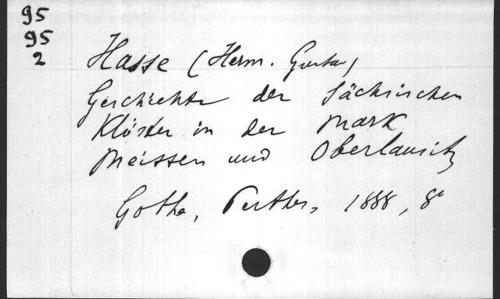 95
95
2
Hasse (Herm. Gustav)
Geschichte der Sächsischen
Klöster in der Mark
Meissen und Oberlausitz
Gotha, Perthes, 1888, 8°